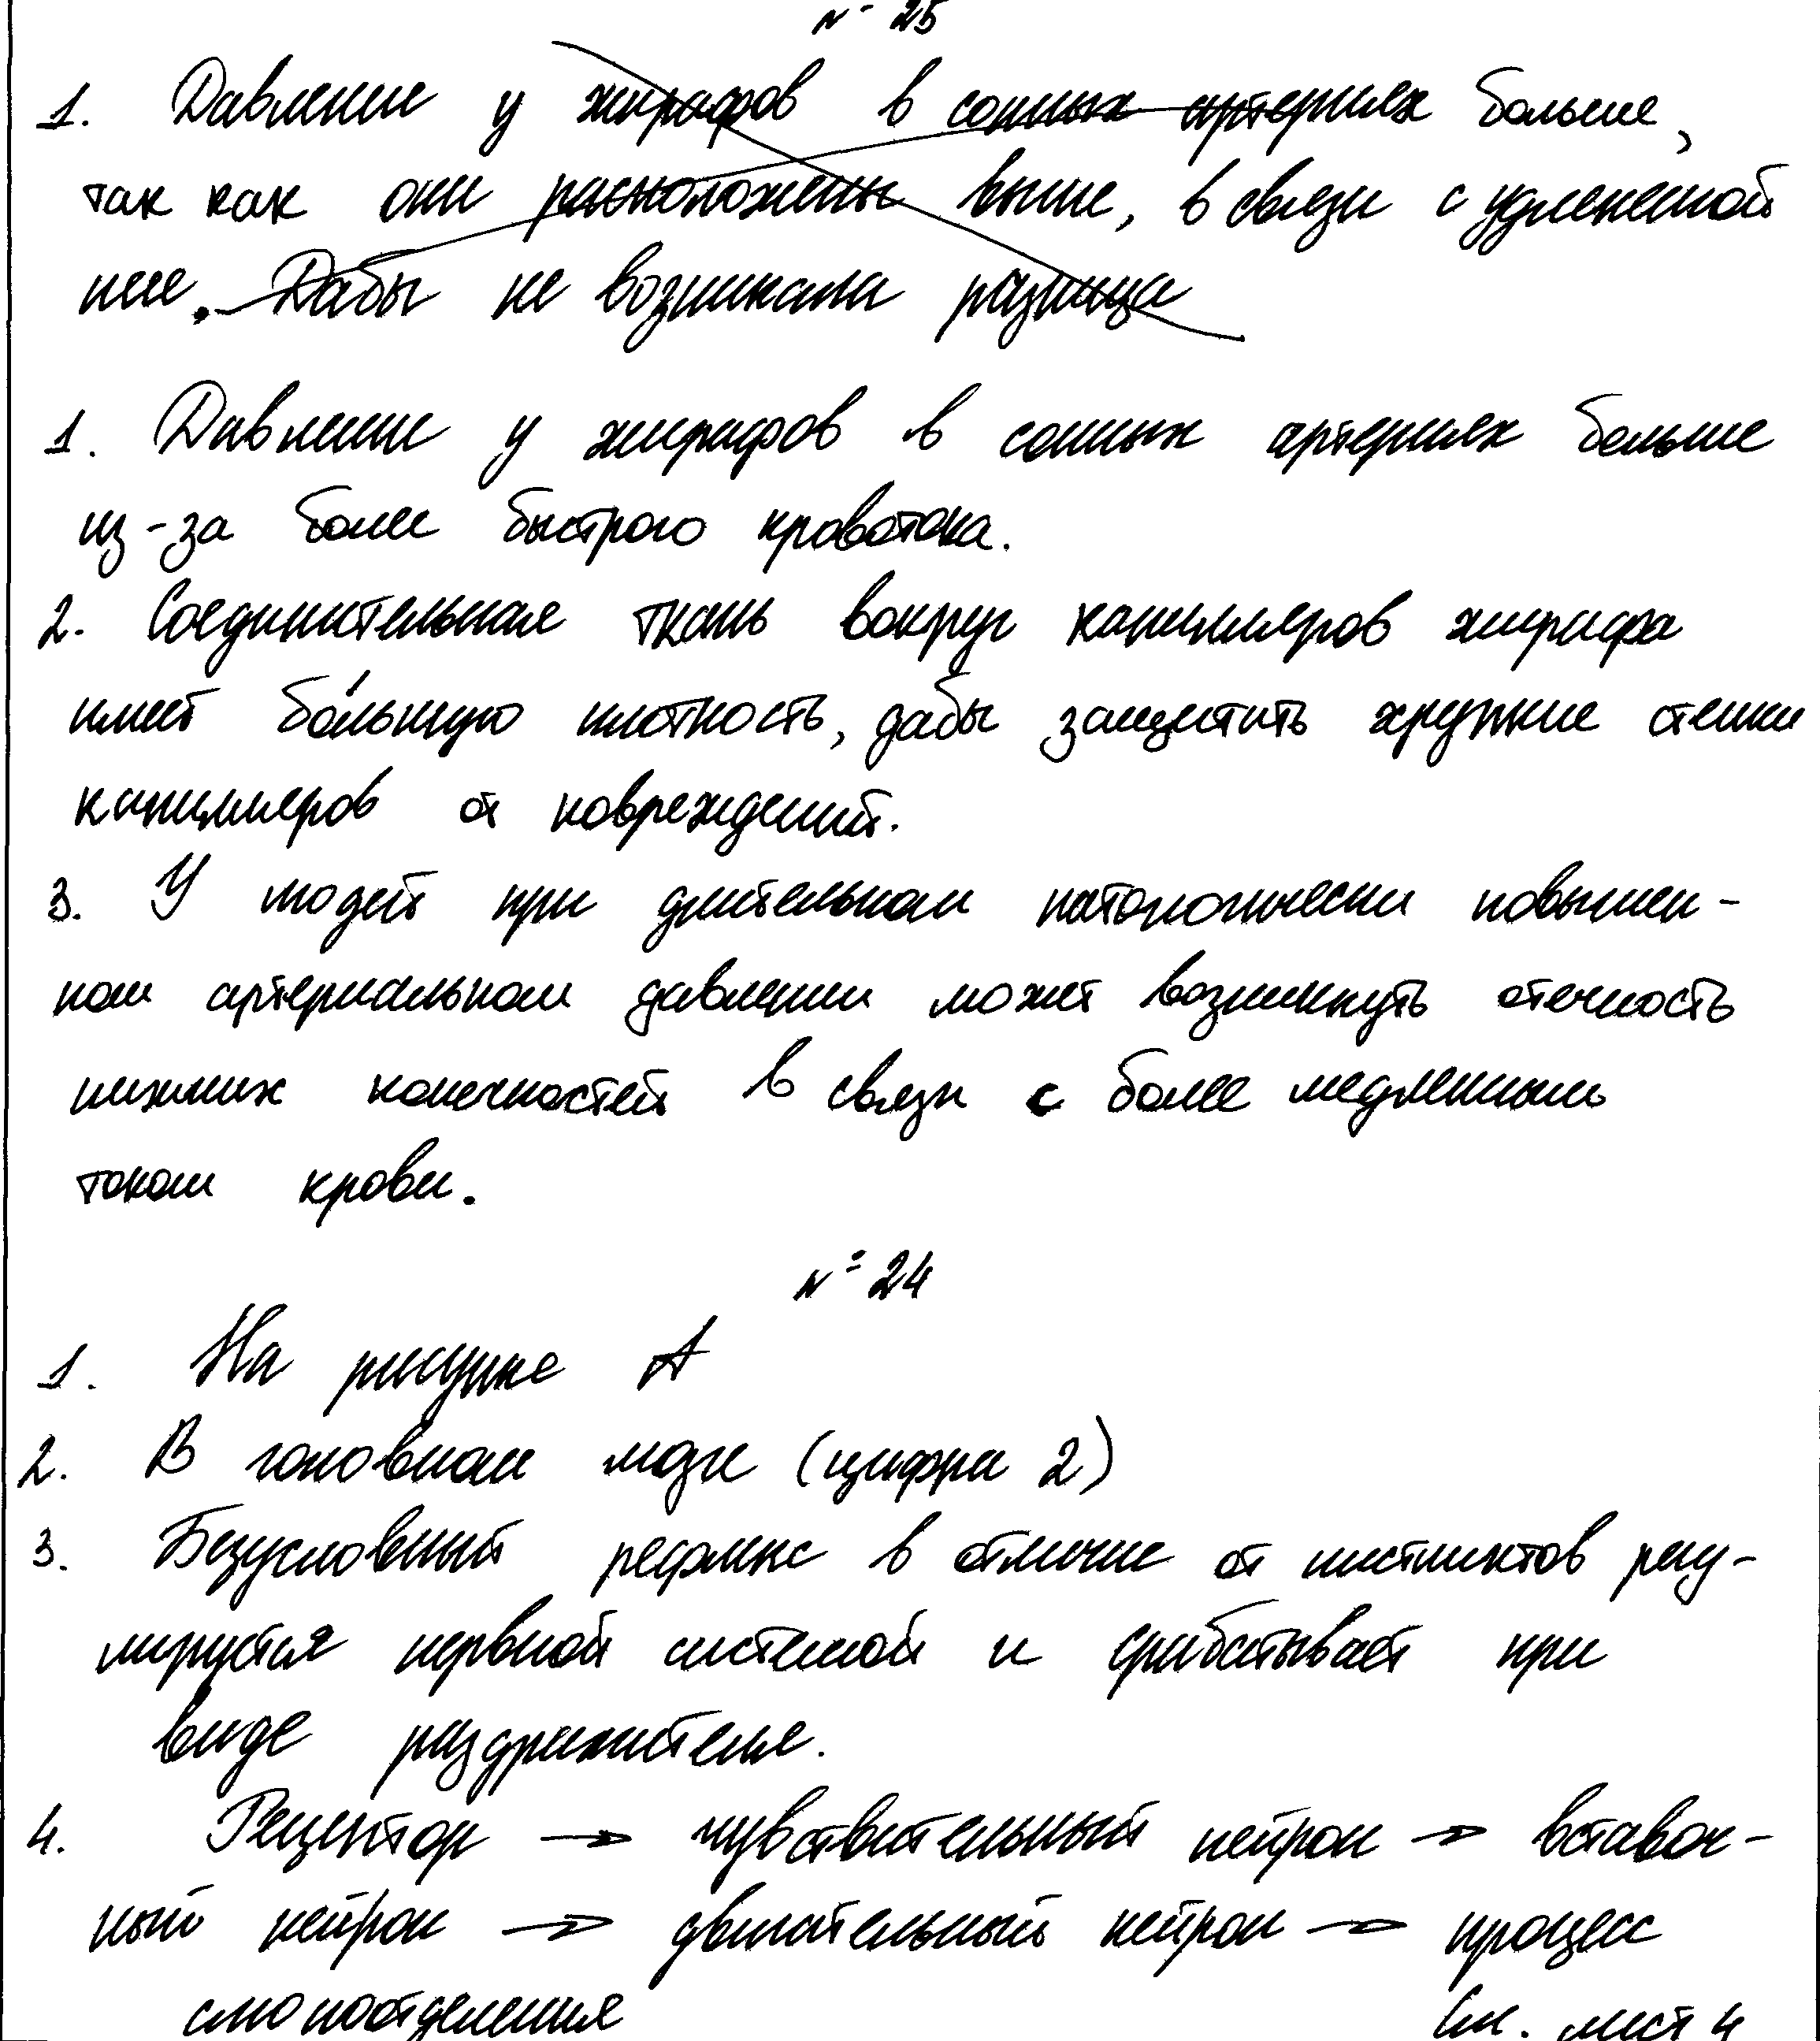 № 25
1. Давление у жирафов в сонных артериях больше,
так как они расположены выше, в связи с удлиненной
шее. Дабы не возникала разница
1. Давление у жирафов в сонных артериях больше
из-за более быстрого кровотока.
2. Соединительная ткань вокруг капилляров жирафа
имеет бо́льшую плотность, дабы защитить хрупкие стенки
капилляров от повреждений.
3. У людей при длительном патологически повышен-
ном артериальном давлении может возникнуть отечность
нижних конечностей в связи с более медленным
током крови.
№ 24
1. На рисунке А
2. В головном мозге (цифра 2)
3. Безусловный рефлекс в отличие от инстинктов регу-
лируется нервной системой и срабатывает при
виде раздражителя.
4. Рецептор → чувствительный нейрон → вставоч-
ный нейрон → двигательный нейрон → процесс
слюноотделения см. лист 4